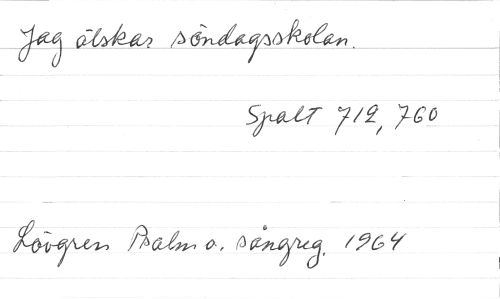 Jag älskar söndagsskolan.
Spalt 712, 760
Lövgren Psalm o. sångreg. 1964